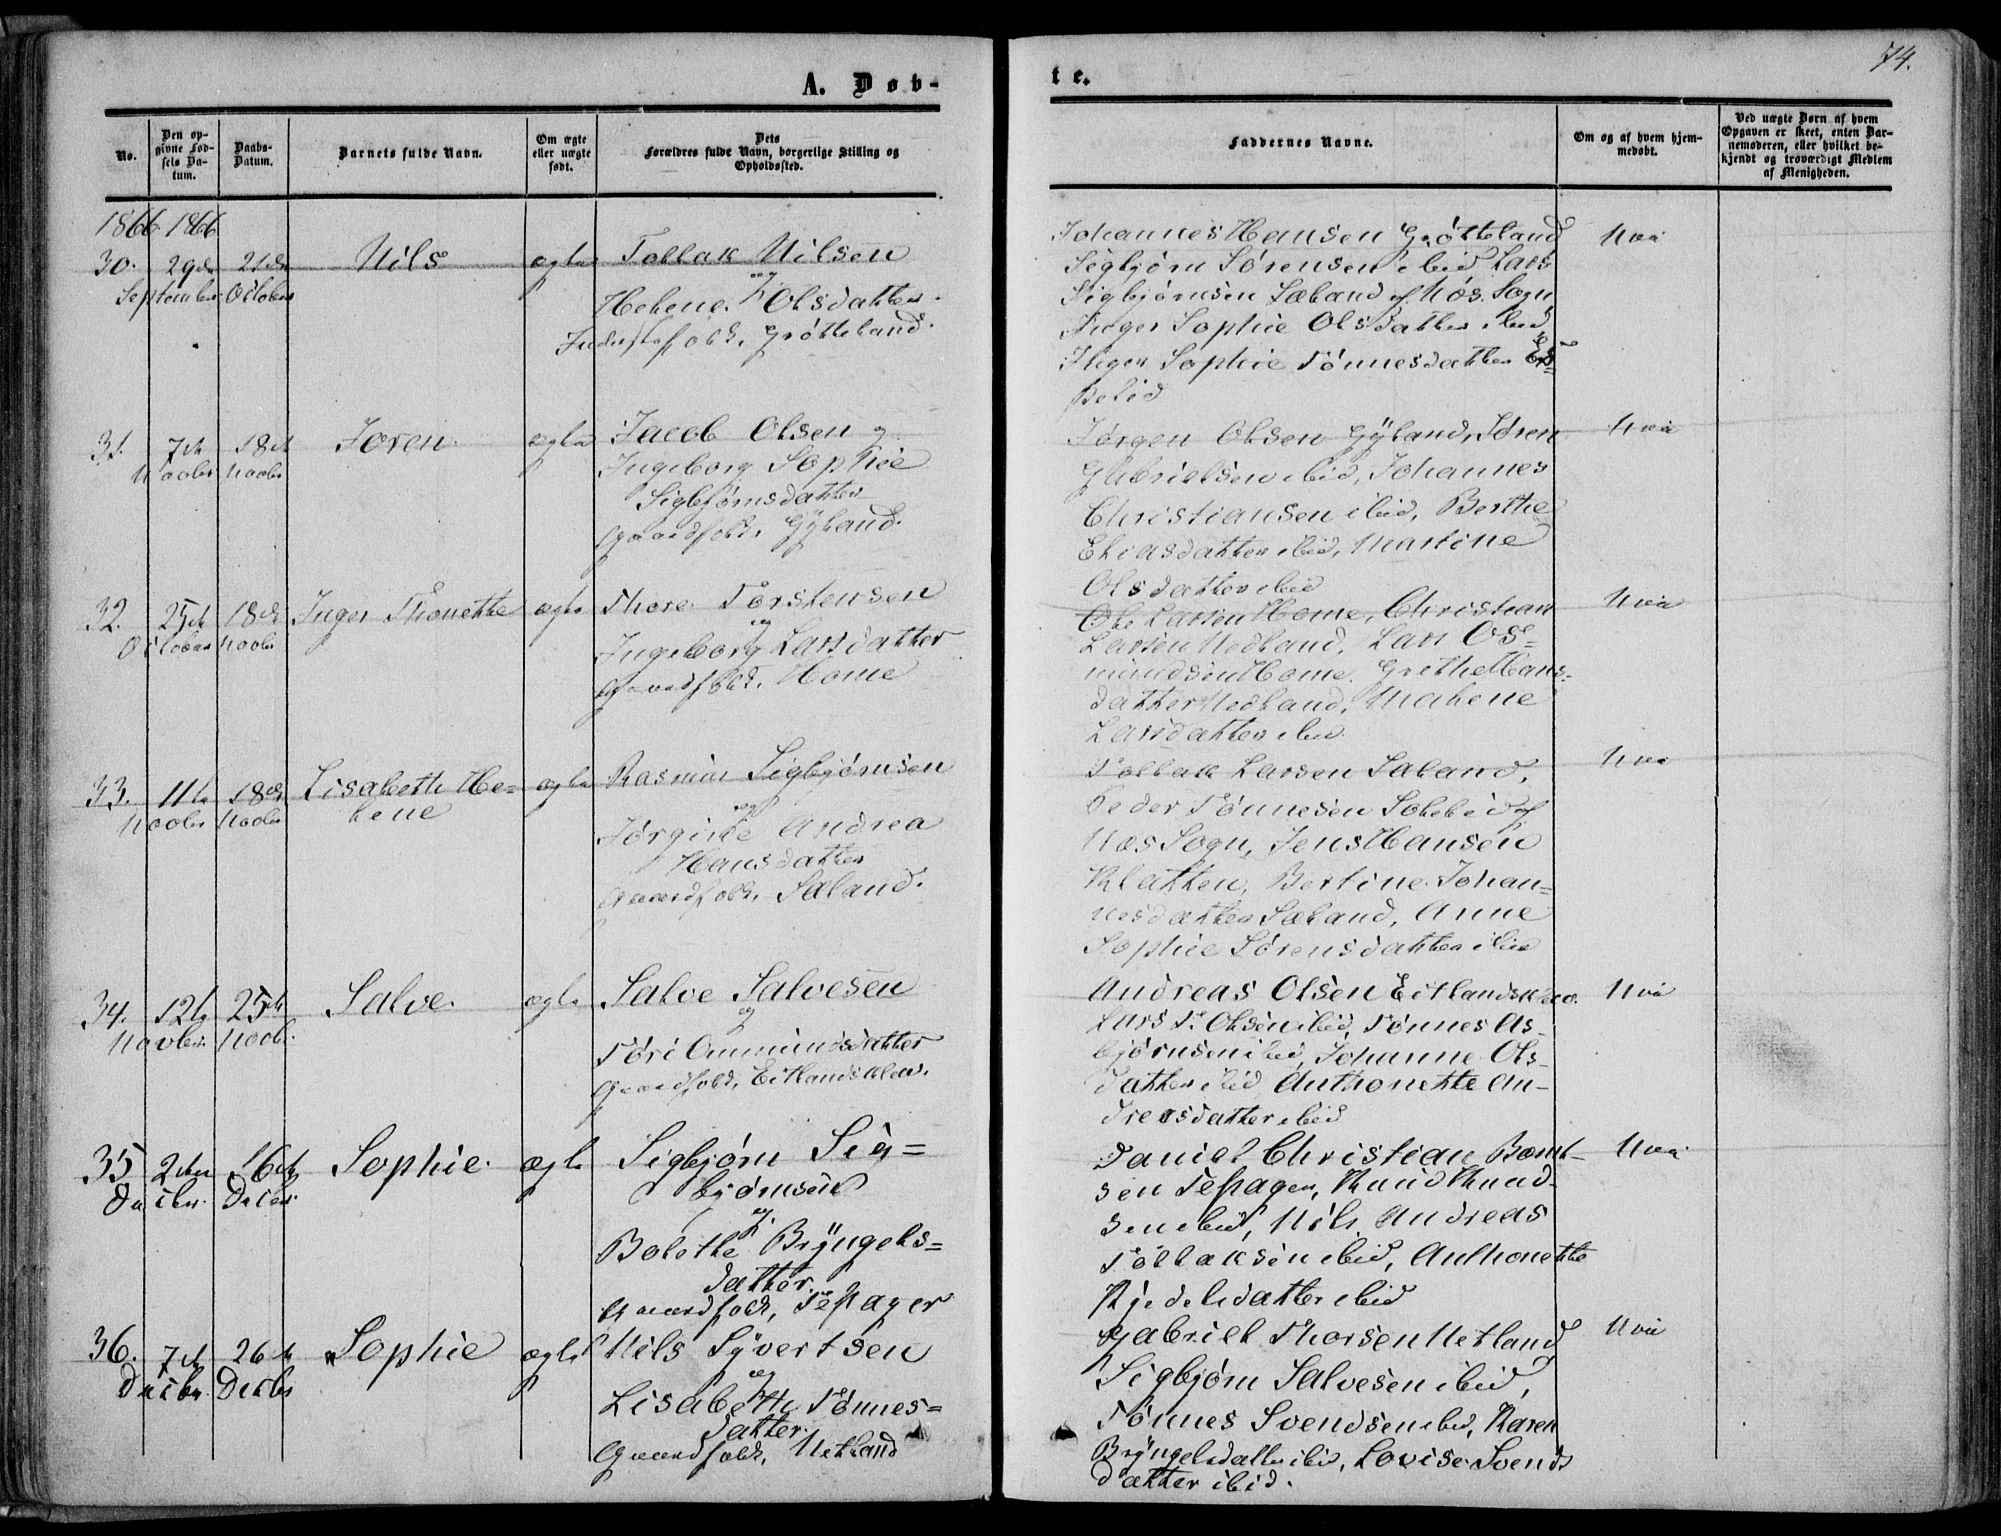 74.
A. Døb-
te.
No.
Den op-
givne Fød-
sels Da-
tum.
Daabs-
Datum.
Barnets fulde Navn.
Om ægte
eller uægte
født.
Dets
Forældres fulde Navn, borgerlige Stilling og
Opholdssted.
Faddernes Navne.
Om og af hvem hjem-
medøbt.
Ved uægte Børn af hvem
Opgaven er skeet, enten Bar-
nemoderen, eller hvilket be-
kjendt og troværdigt Medlem
af Menigheden.
1866 1866
30. 29de 21de Nils ægte Tollak Nilsen
September October
og
Helene Olsdatter
Grøtteland.
Johannes Hansen Grøtteland
Sigbjørn Sørensen ibid, Lars
Sigbjørnsen Sæland af Næs Sogn
Inger Sophie Olsdatter ibid,
Inger Sophie Tønnesdatter
31. 7de 18de Joren ægte Jacob Olsen og
Novbr Novbr
Ingeborg Sophie
Sigbjørnsdatter
Gaardfolk, Gyland.
Jørgen Olsen Gyland, Søren
Gabrielsen ibid, Johannes
Christiansen ibid, Berthe
Eliasdatter ibid, Martine
Olsdatter ibid
32. 25de 18de Inger Thonette ægte Thore Torstensen
October Novbr
og
Ingeborg Larsdatter
Gaardfolk, Home
Ole Larsen Home, Christian
Larsen Nedland, Lars Os-
mundsen Home, Grethe Hans-
datter Nedland, Malene
Larsdatter ibid
33. 11te 18de Lisabeth He- ægte Rasmus Sigbjørnsen
Novbr Novbr lene
og
Jørgine Andrea
Hansdatter
Gaardfolk, Sæland.
Tollak Larsen Sæland,
Peder Tønnesen af
Næs Sogn, Jens Hansen
Klatten, Bertine Johan-
nesdatter Sæland, Anne
Sophie Sørensdatter ibid
34. 12te 25de Salve ægte Salve Salvesen
Novbr. Novbr.
og
Tøri Ommundsdatter
Gaardfolk, Eitlandsklev.
Andreas Olsen Eitlandsklev.
Lars T. Olsen ibid, Tønnes As-
bjørnsen ibid, Johanne Ols-
datter ibid Anthonette An-
dreasdatter ibid
35 2den 16de Sophie. ægte Sigbjørn Sig=
Decbr. Decbr.
bjørnsen
og
Bolette Bryngels=
datter.
Gaardfolk, Tepager
Daniel Christian Bernt-
sen Tepager, Knud Knud-
sen ibid, Nils Andreas
Tollaksen ibid, Anthonette
Kjedelsdatter ibid
36. 7de 26de Sophie ægte Nils Syvertsen
Decbr. Decbr
og
Lisabeth Tønnes=
datter.
Gaardfolk, Netland
Gabriel Thorsen Netland
Sigbjørn Salvesen ibid,
Tønnes Svendsen ibid, Karen
Bryngelsdatter ibid, Lovise Svends
datter ibid.